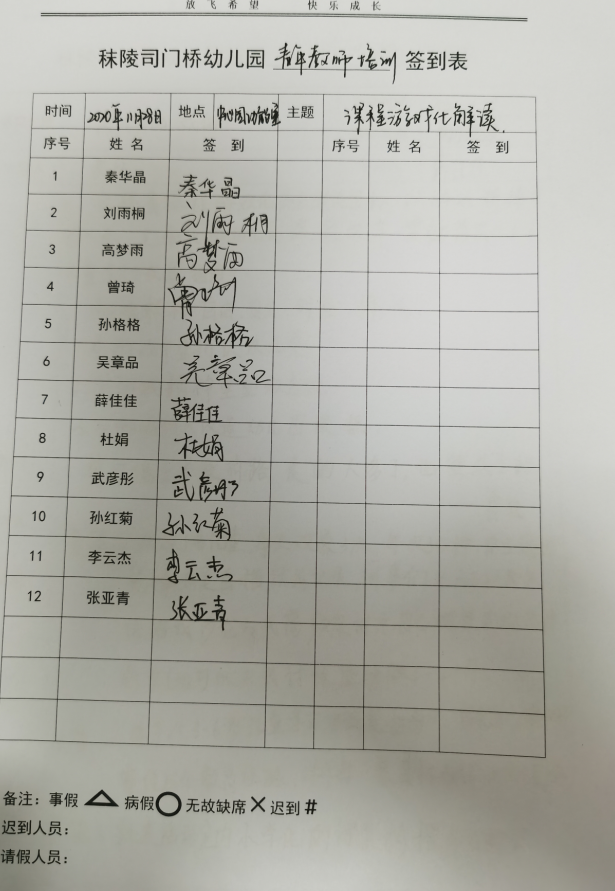 放飞希望 快乐成长
秣陵司门桥幼儿园 青年教师培训 签到表
时间 2020年11月28日 地点 主题 课程游戏化解读
序号 姓名 签到 序号 姓名 签到
1 秦华晶 秦华晶
2 刘雨桐 刘雨桐
3 高梦雨 高梦雨
4 曾琦 曾琦
5 孙格格 孙格格
6 吴章品 吴章品
7 薛佳佳 薛佳佳
8 杜娟 杜娟
9 武彦彤 武彦彤
10 孙红菊 孙红菊
11 李云杰 李云杰
12 张亚青 张亚青
备注：事假 △ 病假 ○ 无故缺席 × 迟到 #
迟到人员：
请假人员：